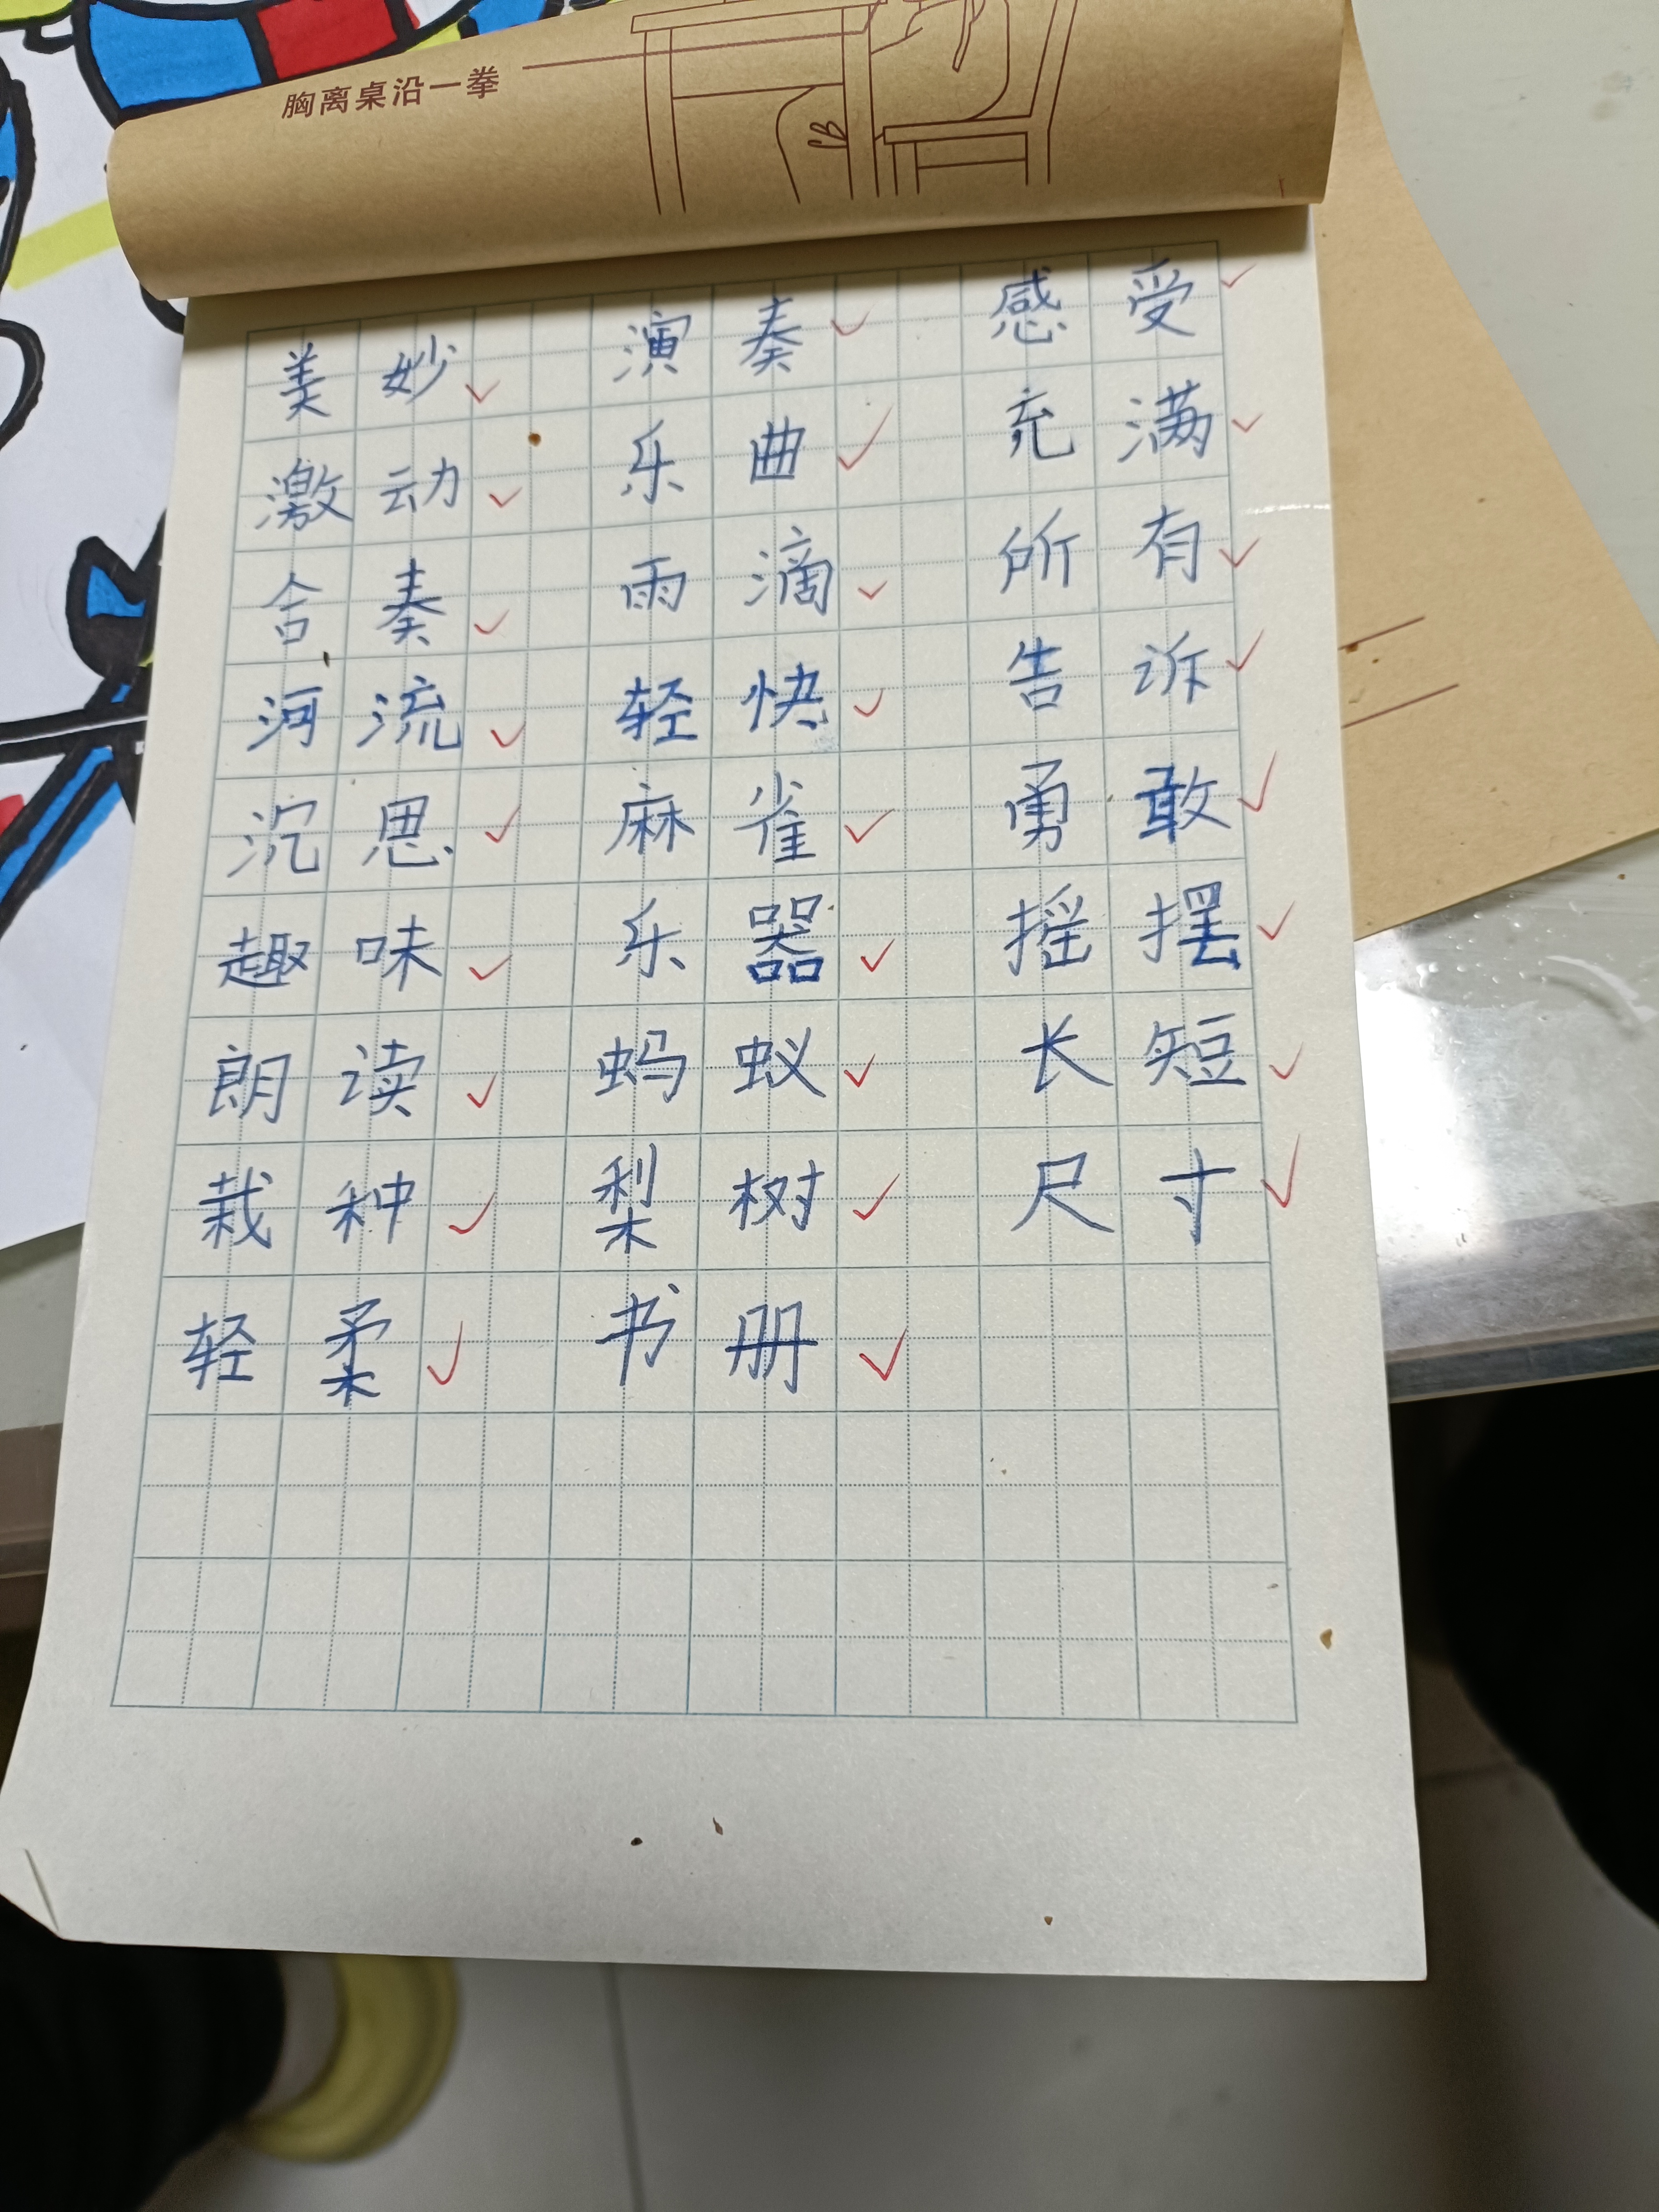 胸离桌沿一拳
美妙 演奏 感受
激动 乐曲 充满
合奏 雨滴 所有
河流 轻快 告诉
沉思 麻雀 勇敢
趣味 乐器 摇摆
朗读 蚂蚁 长短
栽种 梨树 尺寸
轻柔 书册